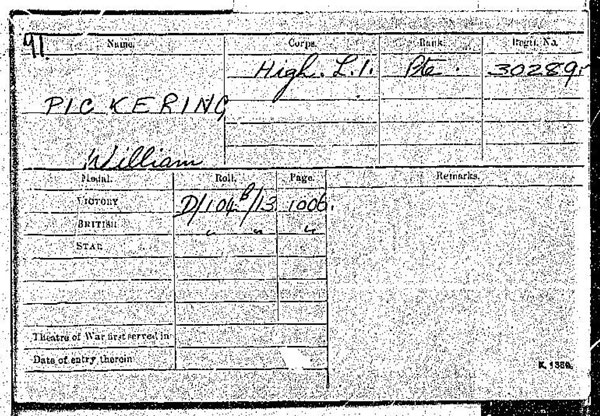 91
Name. Corps. Rank. Regtl. No.
High. L.I. Pte. 30289
PICKERING
William
Medal. Roll. Page. Remarks.
VICTORY D/104 B/13 1006.
BRITISH " " "
STAR
Theatre of War first served in
Date of entry therein
K. 1380.